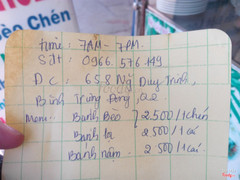 Bèo Chén
time: 7AM - 7PM.
Sđt: 0966 576 149
Đ.c: 658 Ng Duy Trinh,
Bình Trưng Đông, Q2
Menu: Bánh Bèo } 2.500/1 chén
Bánh ít 2 500/1 cá
Bánh nậm. 2 500/1 cá.